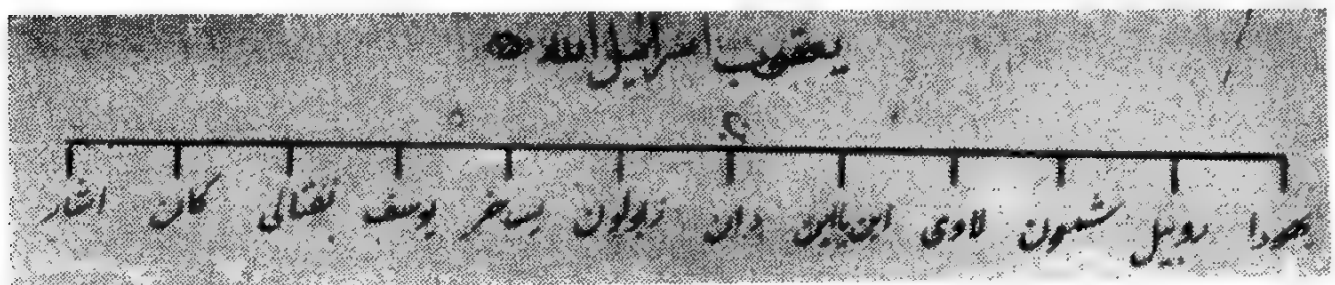 يعقوب اسرائيل الله
يهودا روبيل شمعون لاوى ابن يامين دان زبولون يسخر يوسف نفتالى كان اشار